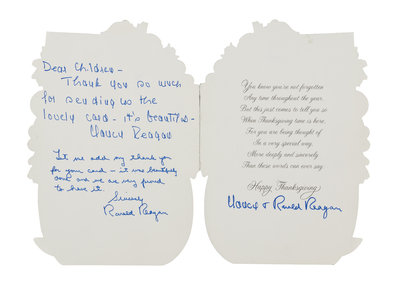 Dear Children -
Thank you so much
for sending us the
lovely card - it's beautiful -
Nancy Reagan
Let me add my thank you
for your card - it was beautifully
done and we are very proud
to have it.
Sincerely
Ronald Reagan
You know you're not forgotten
Any time throughout the year,
But this just comes to tell you so
When Thanksgiving time is here,
For you are being thought of
In a very special way,
More deeply and sincerely
Than these words can ever say.
Happy Thanksgiving
Nancy & Ronald Reagan